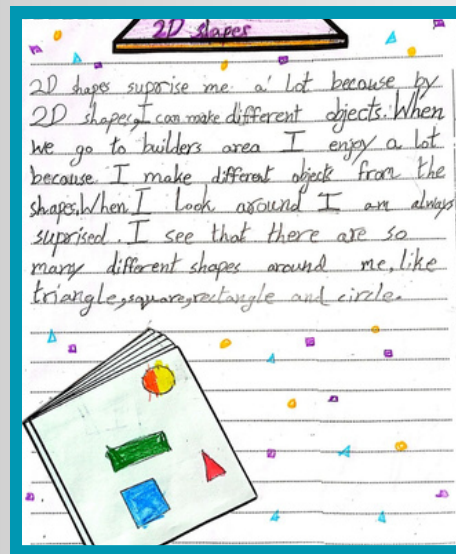 2D shapes
2D shapes suprise me a lot because by
2D shapes, I can make different objects. When
we go to builders area I enjoy a lot
because I make different object from the
shapes. When I look around I am always
suprised. I see that there are so
many different shapes around me, like
triangle, square, rectangle and circle.